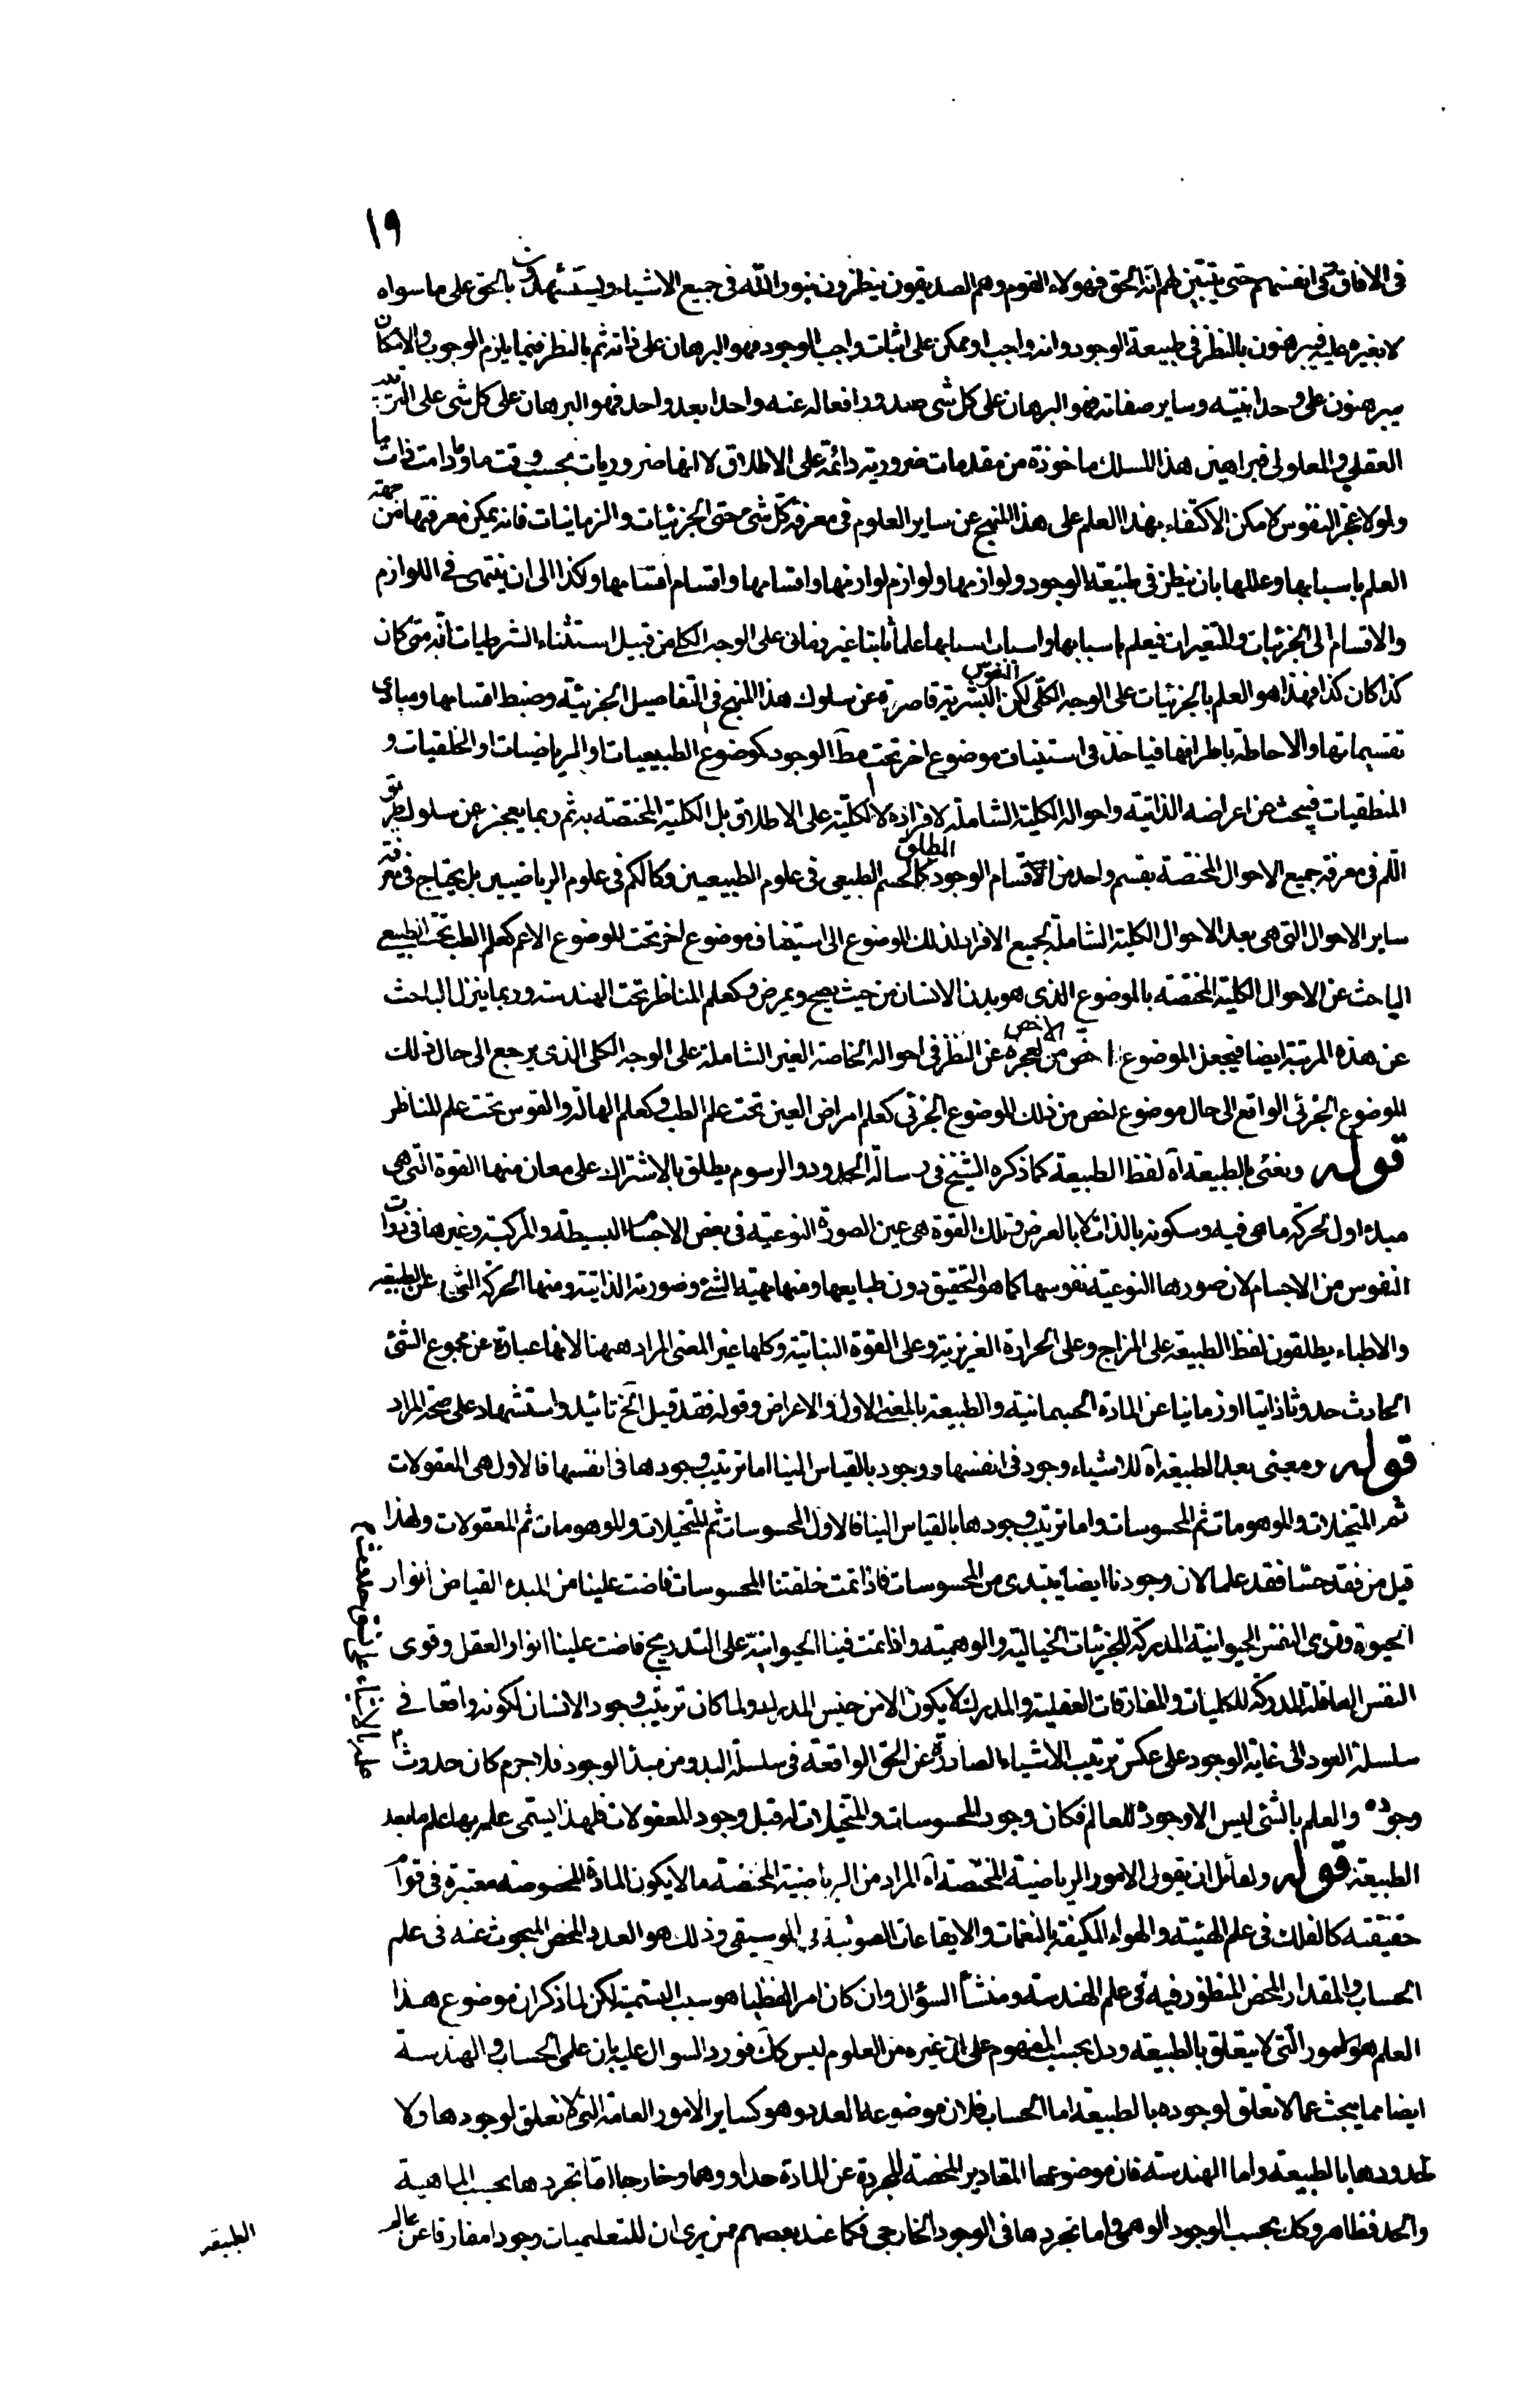 ١٩
فى الافاق وفى انفسهم حتى يتبين لهم انه الحق فهولاء القوم وهم الصديقون ينظرون بنور الله فى جميع الاشياء ويستشهدون بالحق على ما سواه
لا بغيره عليه فيبرهنون بالنظر فى طبيعة الوجود وانه واجب او ممكن على اثبات واجب الوجود فهو البرهان على ذاته ثم بالنظر فيما يلزم الوجوب والامكان
يبرهنون على وحدانيته وساير صفاته فهو البرهان على كل شى صدور افعاله عنه واحدا بعد واحد فهو البرهان على كل شى على الترتيب
العقلى والمعلولى فبراهين هذا المسلك ماخوذة من مقدمات ضرورية دائمة على الاطلاق لا انها ضروريات بحسب وقت ما وما دامت ذات ما
ولولا عجز النفوس لامكن الاكتفاء بهذا العلم على هذا المنهج عن ساير العلوم فى معرفة كل شى حتى الجزئيات والزمانيات فانه يمكن معرفتها من جهة
العلم باسبابها وعللها بان ينظر فى طبيعة الوجود ولوازمها ولوازم لوازمها واقسامها واقسام اقسامها وكذا الى ان ينتهى فى اللوازم
والاقسام الى الجزئيات والمتغيرات فيعلم باسبابها واسباب اسبابها علما ثابتا غير زمانى على الوجه الكلى من قبيل استثناء الشرطيات انه متى كان
كذا كان كذا فهذا هو العلم بالجزئيات على الوجه الكلى لكن النفوس البشرية قاصرة عن سلوك هذا المنهج فى التفاصيل الجزئية وضبط اقسامها ومبادى
تقسيماتها والاحاطة باطرافها فياخذ فى استيناف موضوع اخر تحت مط الوجود كموضوع الطبيعيات او الرياضيات او الخلقيات و
المنطقيات فيبحث عن اعراضه الذاتية واحواله الكلية الشاملة لافراده لا الكلية على الاطلاق بل الكلية المختصة به ثم ربما يعجز عن سلوك طريق
اللم فى معرفة جميع الاحوال المختصة بقسم واحد من اقسام الوجود المطلق كالجسم الطبيعى فى علوم الطبيعيين وكالكم فى علوم الرياضيين بل يحتاج فى معرفة
ساير الاحوال التى هى بعد الاحوال الكلية الشاملة لجميع الافراد لذلك الموضوع الى استيناف موضوع اخر تحت الموضوع الاعم كعلم الطب تحت الطبيعى
الباحث عن الاحوال الكلية المختصة بالموضوع الذى هو بدن الانسان من حيث يصح ويمرض وكعلم المناظر تحت الهندسة وربما ينزل الباحث
عن هذه المرتبة ايضا فيجعل الموضوع اخص من الاخص لعجزه عن النظر فى احواله الخاصة الغير الشاملة على الوجه الكلى الذى يرجع الى حال ذلك
الموضوع الجزئى الواقع الى حال موضوع اخص من ذلك الموضوع الجزئى كعلم امراض العين تحت علم الطب وكعلم الهالة والقوس تحت علم المناظر
قوله ونعنى بالطبيعة آه لفظ الطبيعة كما ذكره الشيخ فى رسالة الحدود والرسوم يطلق بالاشتراك على معان منها القوة التى هى
مبدء اول لحركة ما هى فيه وسكونه بالذات لا بالعرض فتلك القوة هى عين الصورة النوعية فى بعض الاجسام البسيطة والمركبة وغيرها فى ذوات
النفوس من الاجسام لان صورها النوعية نفوسها كما هو التحقيق دون طبايعها ومنها مهية الشئ وصورته الذاتية ومنها الحركة التى عن الطبيعة
والاطباء يطلقون لفظ الطبيعة على المزاج وعلى الحرارة الغريزية وعلى القوة النباتية وكلها غير المعنى المراد ههنا لانها عبارة عن مجموع الشئ
الحادث حدوثا ذاتيا او زمانيا عن المادة الجسمانية والطبيعة بالمعنى الاول والاعراض وقوله فقد قيل الخ تائيد واستشهاد على صحة المراد
قوله ومعنى بعد الطبيعة آه للاشياء وجود فى انفسها ووجود بالقياس الينا اما ترتيب وجودها فى انفسها فالاول هى المعقولات
ثم المتخيلات والموهومات ثم المحسوسات واما ترتيب وجودها بالقياس الينا فالاول المحسوسات ثم المتخيلات والموهومات ثم المعقولات ولهذا
قيل من فقد حسا فقد علما لان وجودنا ايضا يبتدى من المحسوسات فاذا تمت خلقتنا المحسوسات فاضت علينا من المبدء الفياض انوار
الحيوة وقوى النفس الحيوانية المدركة للجزئيات الخيالية والوهمية واذا تمت فينا الحيوانية على التدريج فاضت علينا انوار العقل وقوى
النفس العاقلة المدركة للكليات والمفارقات العقلية والمدرك لا يكون الا من جنس المدرك ولما كان ترتيب وجود الانسان لكونه واقعا فى
سلسلة العود الى غاية الوجود على عكس ترتيب الاشياء الصادرة عن الحق الواقعة فى سلسلة البدو من مبدا الوجود فلا جرم كان حدوث
علمه بالاشياء على نسق حدوث
وجوده والعلم بالشى ليس الا وجوده للعالم فكان وجود المحسوسات والمتخيلات له قبل وجود المعقولات فلهذا يسمى علمه بها علم ما بعد
الطبيعة قوله ولقائل ان يقول الامور الرياضية المختصة آه المراد من الرياضية المختصة ما لا يكون المادة المخصوصة معتبرة فى قوام
حقيقته كالفلك فى علم الهيئة والهواء المكيفة بالنغمات والايقاعات الصوتية فى الموسيقى وذلك هو العدد المحض المبحوث عنه فى علم
الحساب والمقدار المحض المنظور فيه فى علم الهندسة ومنشأ السؤال وان كان امرا لفظيا هو سبب التسمية لكن لما ذكر ان موضوع هذا
العلم هو الامور التى لا يتعلق بالطبيعة ودل بحسب المفهوم على ان غيره من العلوم ليس كك فورد السوال عليه بان علمى الحساب والهندسة
ايضا مما يبحث عما لا تعلق لوجوده بالطبيعة اما الحساب فلان موضوعه العدد وهو كساير الامور العامة التى لا تعلق لوجودها ولا
لحدودها بالطبيعة واما الهندسة فان موضوعها المقادير المحضة المجردة عن المادة حدا ووهما وخارجا اما تجردها بحسب الماهية
والحد فظاهر وكك بحسب الوجود الوهمى واما تجردها فى الوجود الخارجى فكما عند بعضهم ممن يرى ان للتعليميات وجودا مفارقا عن عالم
الطبيعة